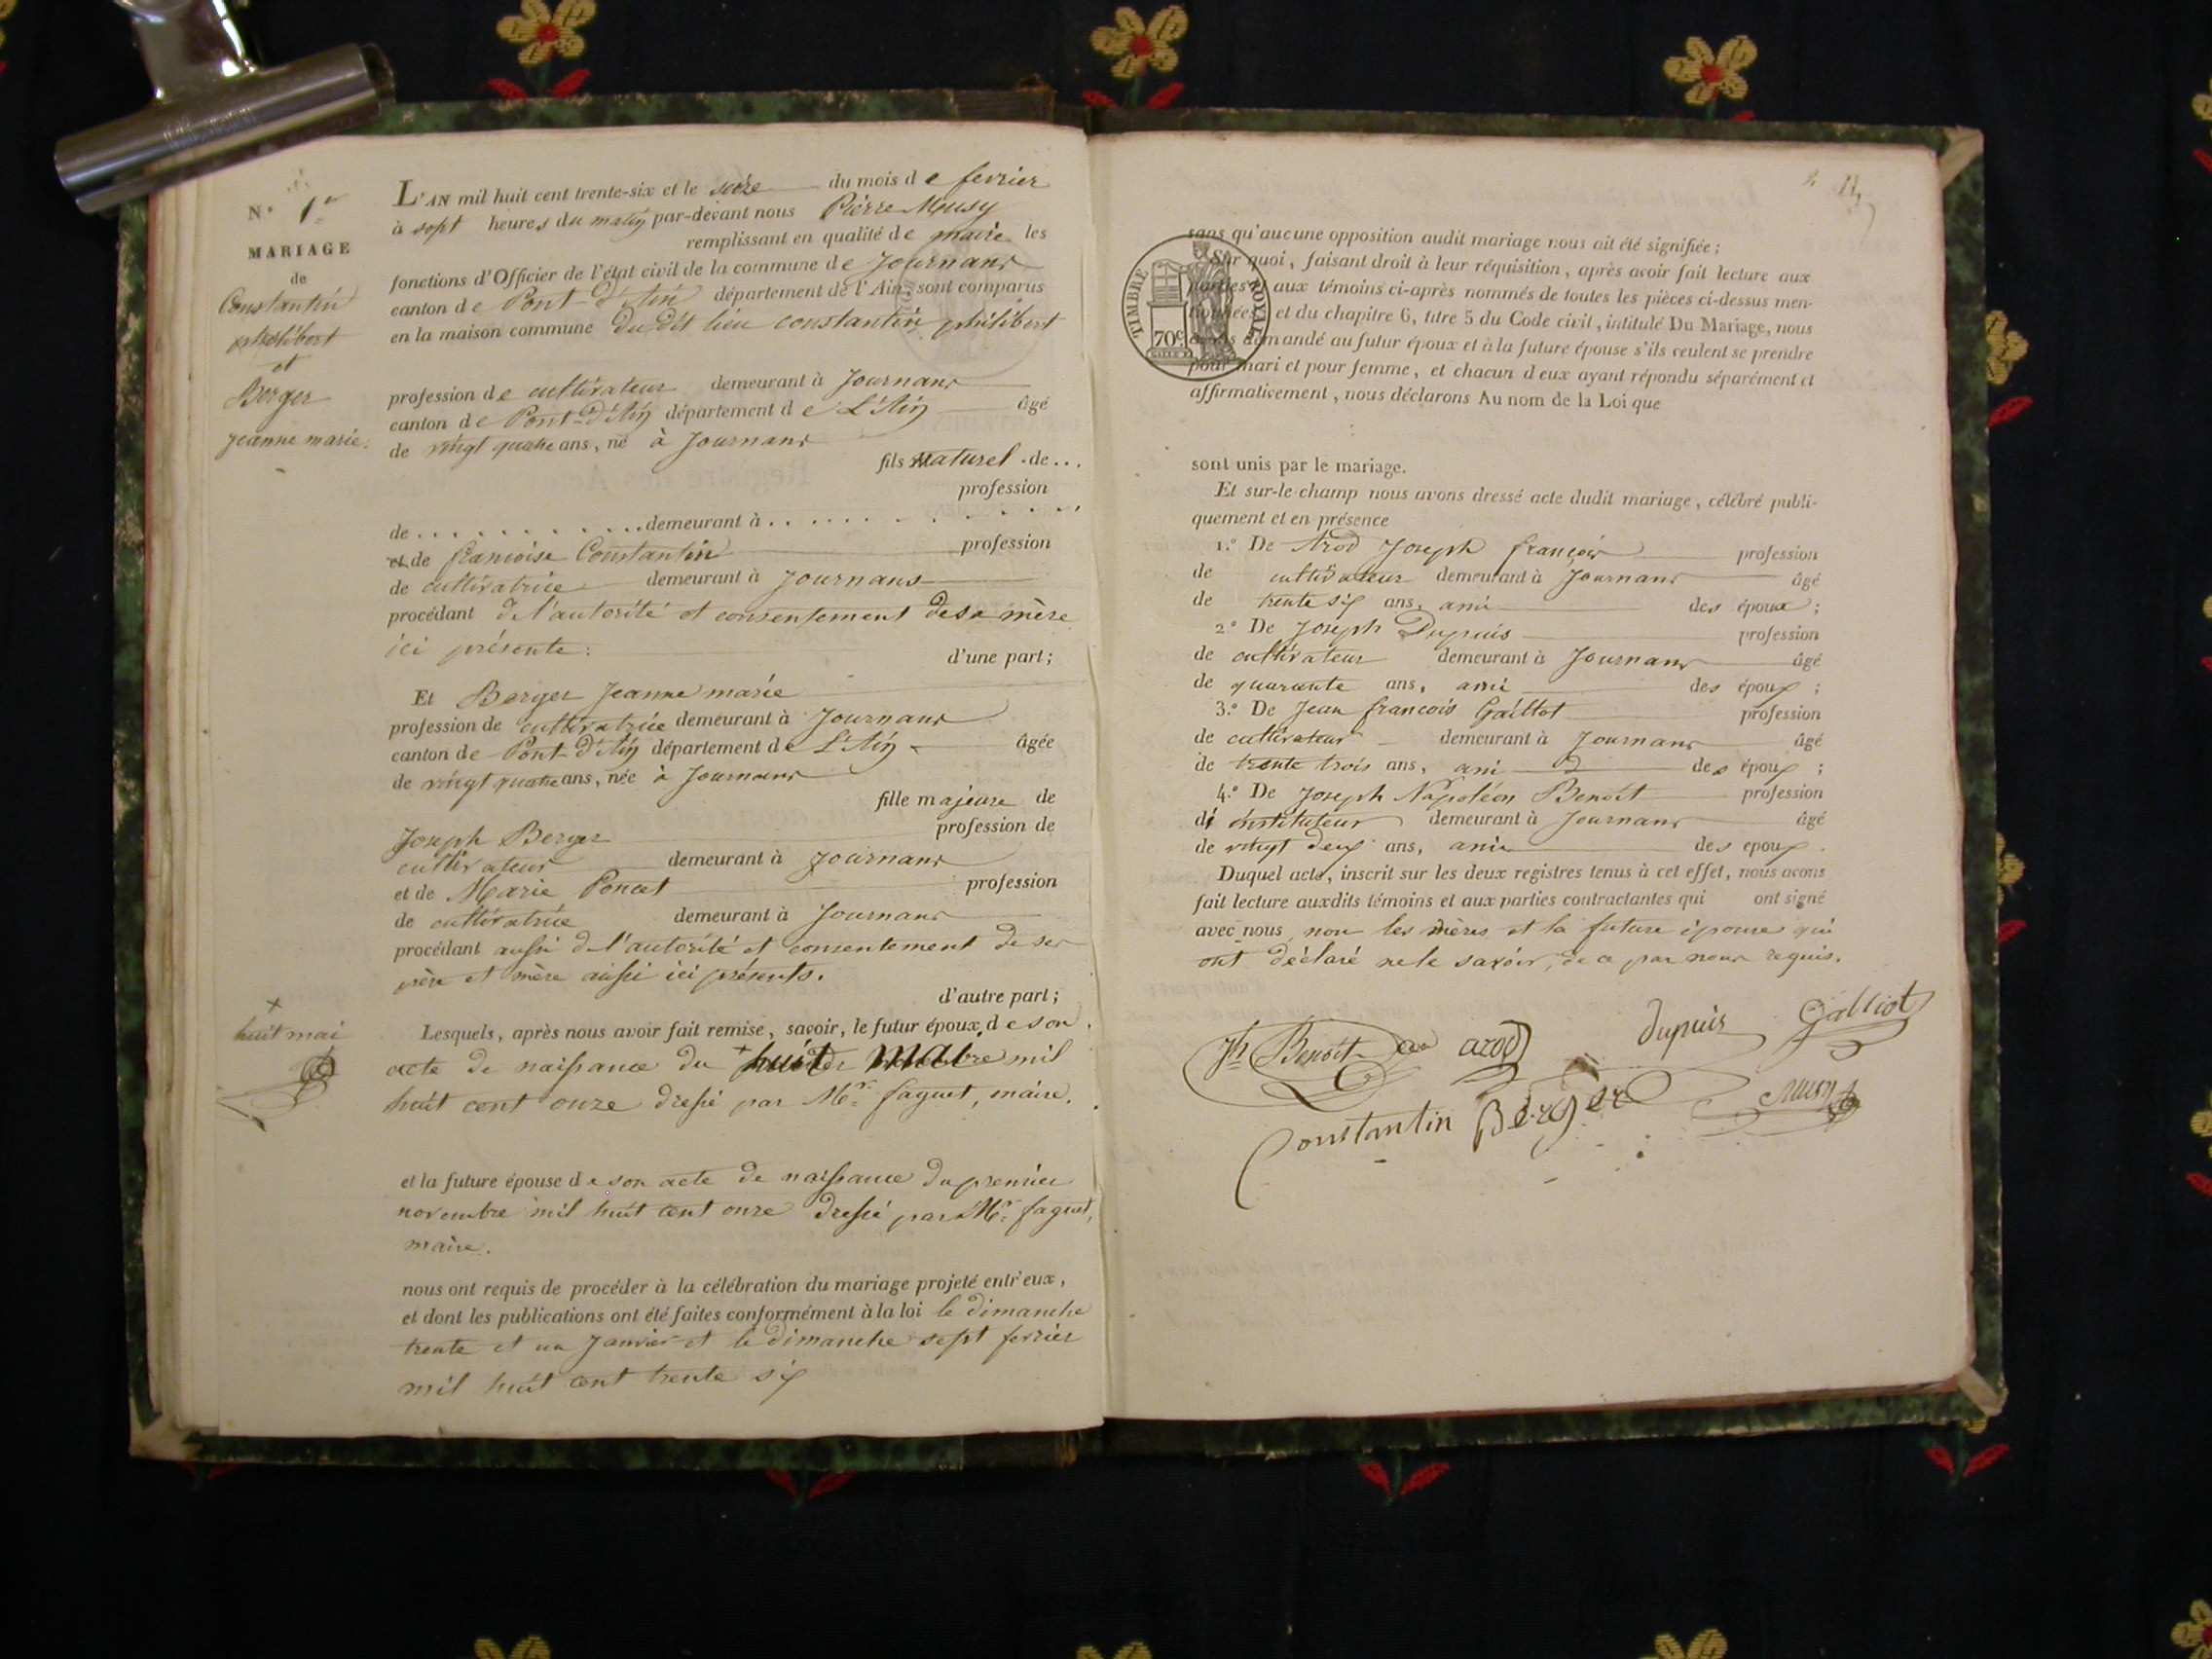 N.° 1er
MARIAGE
de
Constantin
philibert
et
Berger
jeanne marie.
L'AN mil huit cent trente-six et le seize du mois de fevrier
à sept heures du matin par-devant nous Pierre Musy
remplissant en qualité de maire les
fonctions d'Officier de l'état civil de la commune de Journans
canton de Pont-d'Ain département de l'Ain, sont comparus
en la maison commune du dit lieu constantin philibert
profession de cultivateur demeurant à Journans
canton de Pont-d'Ain département de L'Ain âgé
de vingt quatre ans, né à Journans
fils naturel de...
profession
de ............ demeurant à ............
et de francoise Constantin profession
de cultivatrice demeurant à Journans
procédant de l'autorité et consentement de sa mère
ici présente. d'une part;
Et Berger Jeanne marie
profession de cultivatrice demeurant à Journans
canton de Pont-d'Ain département de L'Ain âgée
de vingt quatre ans, née à Journans
fille majeure de
Joseph Berger profession de
cultivateur demeurant à Journans
et de Marie Poncet profession
de cultivatrice demeurant à Journans
procédant aussi de l'autorité et consentement de ses
père et mère aussi ici présents.
d'autre part;
+
huit mai
Lesquels, après nous avoir fait remise, savoir, le futur époux, de son
acte de naissance du + huit mai mil
huit cent onze dressé par Mr. faguet, maire.
et la future épouse de son acte de naissance du premier
novembre mil huit cent onze dressé par Mr. faguet,
maire.
nous ont requis de procéder à la célébration du mariage projeté entr'eux,
et dont les publications ont été faites conformément à la loi le dimanche
trente et un Janvier et le dimanche sept fevrier
mil huit cent trente six
TIMBRE ROYAL
70c
sans qu'aucune opposition audit mariage nous ait été signifiée;
Sur quoi, faisant droit à leur réquisition, après avoir fait lecture aux
parties et aux témoins ci-après nommés de toutes les pièces ci-dessus men-
tionnées, et du chapitre 6, titre 5 du Code civil, intitulé Du Mariage, nous
avons demandé au futur époux et à la future épouse s'ils veulent se prendre
pour mari et pour femme, et chacun d'eux ayant répondu séparément et
affirmativement, nous déclarons Au nom de la Loi que
sont unis par le mariage.
Et sur-le-champ nous avons dressé acte dudit mariage, célébré publi-
quement et en présence
1.° De Arod Joseph françois profession
de cultivateur demeurant à Journans âgé
de trente six ans, ami des époux;
2.° De Joseph Dupuis profession
de cultivateur demeurant à Journans âgé
de quarante ans, ami des époux;
3.° De Jean francois Galliot profession
de cultivateur demeurant à Journans âgé
de trente trois ans, ami des époux;
4.° De Joseph Napoléon Benoit profession
d'instituteur demeurant à Journans âgé
de vingt deux ans, ami des epoux.
Duquel acte, inscrit sur les deux registres tenus à cet effet, nous avons
fait lecture auxdits témoins et aux parties contractantes qui ont signé
avec nous, non les mères et la future épouse qui
ont déclaré ne le savoir, de ce par nous requis.
Jh Benoit arod dupuis Galliot
Constantin Berger Musy